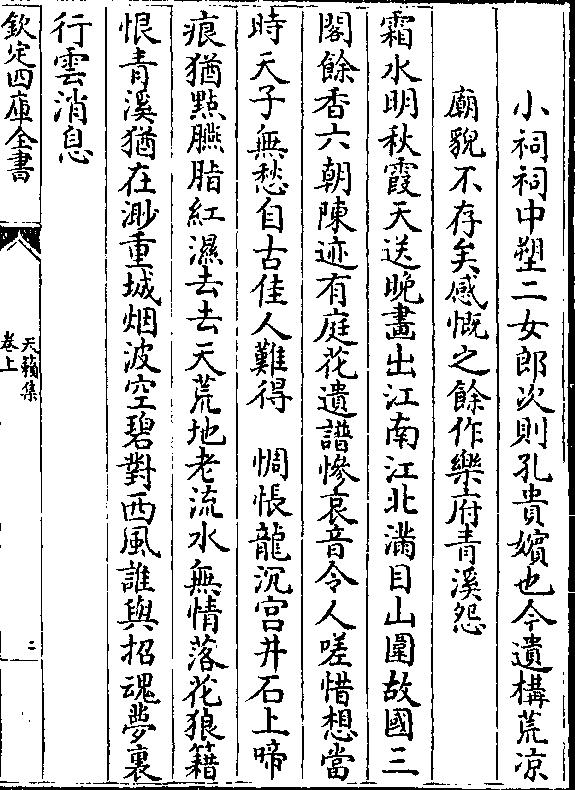 小祠祠中塑二女郎次則孔貴嬪也今遺構荒凉
廟貌不存矣感慨之餘作樂府青溪怨
霜水明秋霞天送晚畫出江南江北滿目山圍故國三
閣餘香六朝陳迹有庭花遺譜慘哀音令人嗟惜想當
時天子無愁自古佳人難得　惆悵龍沉宫井石上啼
痕猶㸃臙脂紅濕去去天荒地老流水無情落花狼籍
恨青溪猶在渺重城烟波空碧對西風誰與招魂夢裏
行雲消息
欽定四庫全書
天籟集
卷上
二